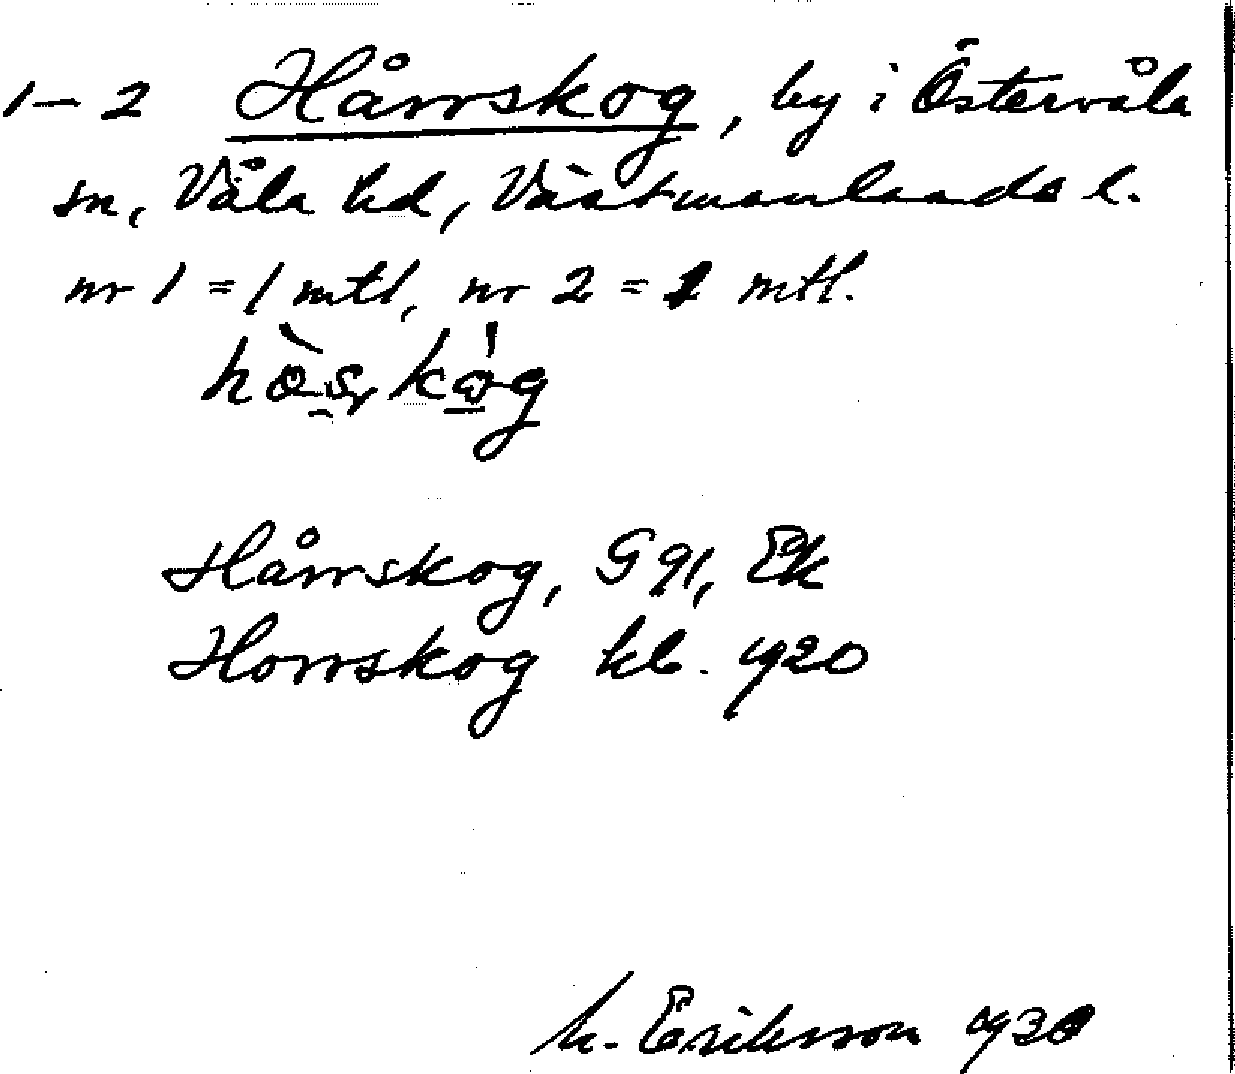 1-2 Hårrskog, by i Östervåla
sn, Våla hd, Västmanlands l.
nr 1 = 1 mtl, nr 2 = 1 mtl.
Hårrskog, G 91, Ek
Horrskog kb. 1920
M. Eriksson 1930